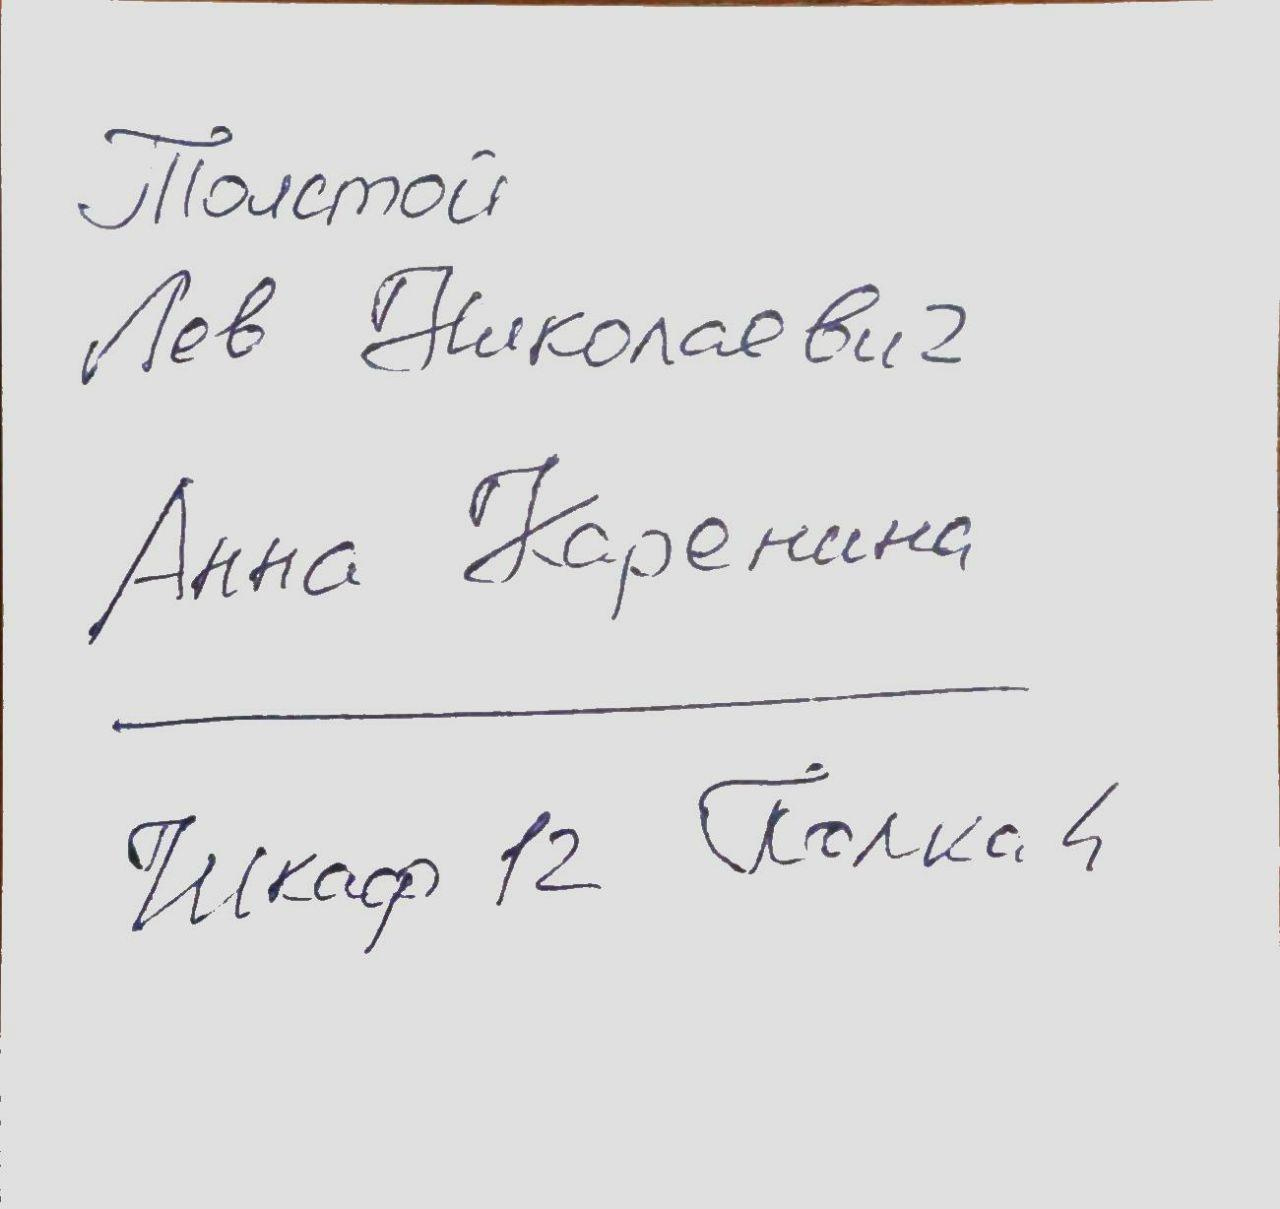 Толстой
Лев Николаевич
Анна Каренина
Шкаф 12 Полка 4